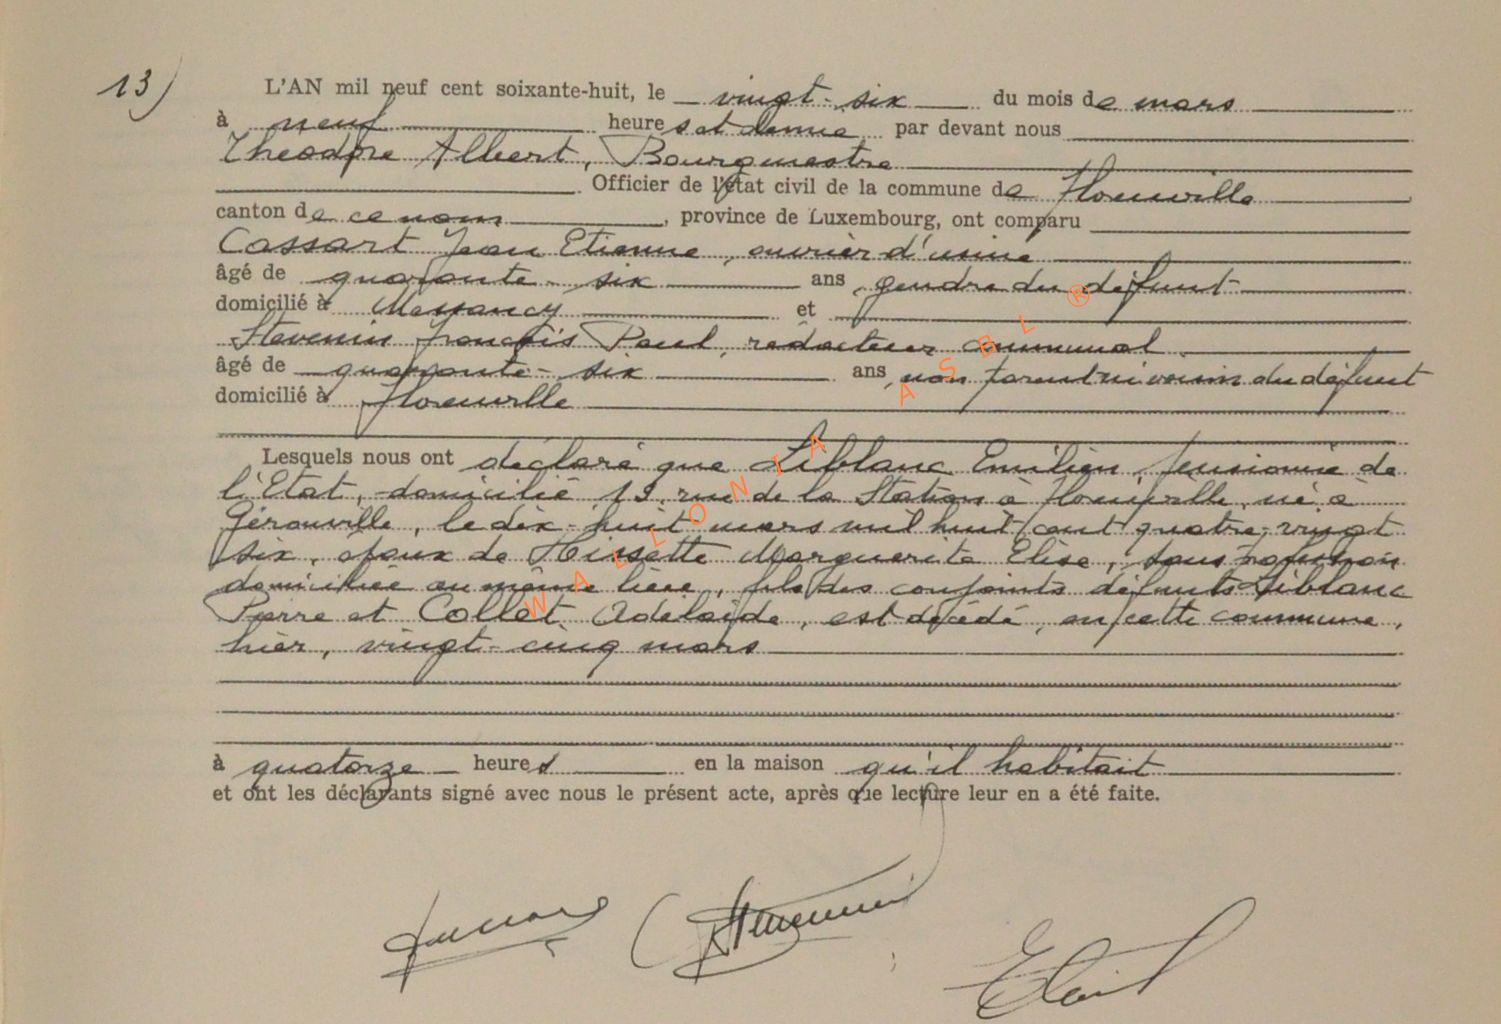 13) L'AN mil neuf cent soixante-huit, le vingt-six du mois de mars
à neuf heures et demie par devant nous
Théodore Albert, Bourgmestre
Officier de l'état civil de la commune de Florenville
canton de ce nom, province de Luxembourg, ont comparu
Cassart Jean Etienne, ouvrier d'usine
âgé de quarante-six ans, gendre du défunt
domicilié à Messancy et
Stevenin François Paul, rédacteur communal
âgé de quarante-six ans, non parent ni voisin du défunt
domicilié à Florenville
Lesquels nous ont déclaré que Liblanc Emilien, pensionné de
l'Etat, domicilié 19, rue de la Station à Florenville, né à
Gérouville, le dix-huit mars mil huit cent quatre-vingt
six, époux de Hissette Marguerite Elise, sans profession
domiciliée au même lieu, fils des conjoints défunts Liblanc
Pierre et Collet Adelaïde, est décédé, en cette commune,
hier, vingt-cinq mars
à quatorze heures en la maison qu'il habitait
et ont les déclarants signé avec nous le présent acte, après que lecture leur en a été faite.
WALLONIA ASBL ®